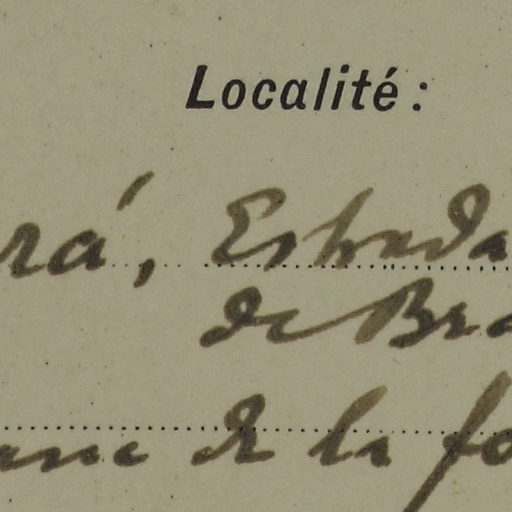 Localité:
rá, Estrada
de Bra
de la fo